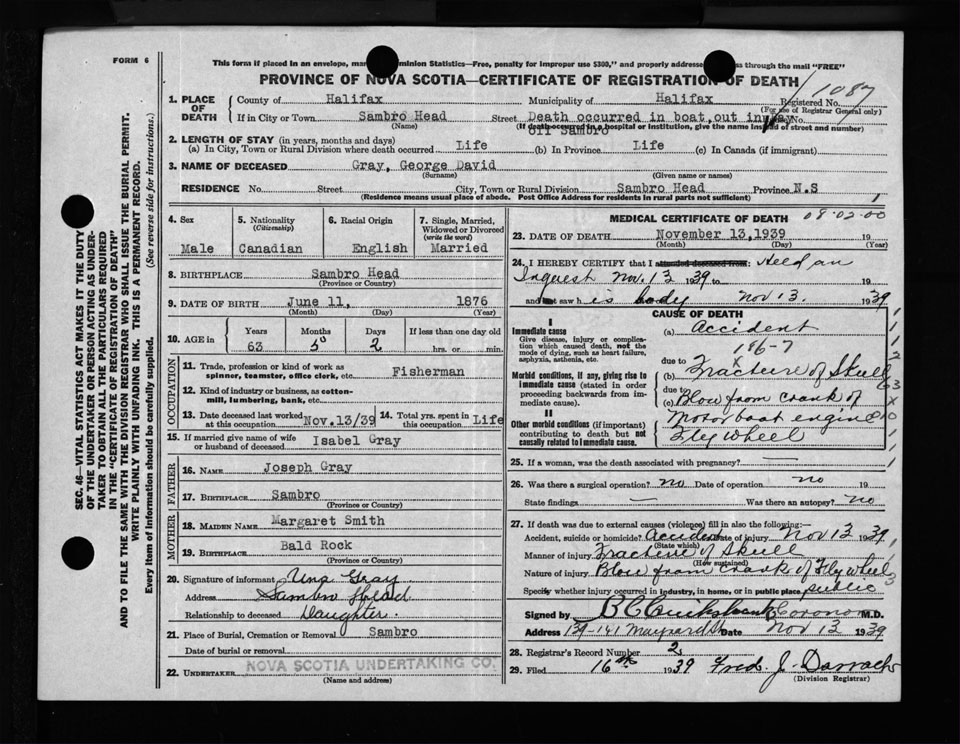 FORM 6
This form if placed in an envelope, mar minion Statistics—Free, penalty for improper use $300," and properly addresse s through the mail "FREE"
PROVINCE OF NOVA SCOTIA—CERTIFICATE OF REGISTRATION OF DEATH
1087
1. PLACE OF DEATH
County of Halifax Municipality of Halifax Registered No.
(For use of Registrar General only)
If in City or Town Sambro Head Street Death occurred in boat, out in No.
(Name) (If death occurred in a hospital or institution, give the name instead of street and number)
off Sambro
2. LENGTH OF STAY (in years, months and days)
(a) In City, Town or Rural Division where death occurred Life (b) In Province Life (c) In Canada (if immigrant)
3. NAME OF DECEASED Gray, George David
(Surname) (Given name or names)
RESIDENCE No. Street City, Town or Rural Division Sambro Head Province N.S
(Residence means usual place of abode. Post Office Address for residents in rural parts not sufficient) 1
4. Sex Male
5. Nationality (Citizenship) Canadian
6. Racial Origin English
7. Single, Married, Widowed or Divorced (write the word) Married
8. BIRTHPLACE Sambro Head
(Province or Country)
9. DATE OF BIRTH June 11, 1876
(Month) (Day) (Year)
10. AGE in Years 63 Months 5 Days 2 If less than one day old hrs. or min.
OCCUPATION
11. Trade, profession or kind of work as spinner, teamster, office clerk, etc. Fisherman
12. Kind of industry or business, as cotton-mill, lumbering, bank, etc.
13. Date deceased last worked at this occupation Nov.13/39
14. Total yrs. spent in this occupation Life
15. If married give name of wife or husband of deceased Isabel Gray
FATHER
16. NAME Joseph Gray
17. BIRTHPLACE Sambro
(Province or Country)
MOTHER
18. MAIDEN NAME Margaret Smith
19. BIRTHPLACE Bald Rock
(Province or Country)
20. Signature of informant Una Gray
Address Sambro Head
Relationship to deceased Daughter
21. Place of Burial, Cremation or Removal Sambro
Date of burial or removal
22. UNDERTAKER NOVA SCOTIA UNDERTAKING CO.
(Name and address)
MEDICAL CERTIFICATE OF DEATH 08-02-00
23. DATE OF DEATH November 13,1939 19
(Month) (Day) (Year)
24. I HEREBY CERTIFY that I attended deceased from: Held an
Inquest Nov. 13 1939 to 19
and last saw his body Nov 13. 1939
CAUSE OF DEATH
I
Immediate cause
Give disease, injury or complication which caused death, not the mode of dying, such as heart failure, asphyxia, asthenia, etc.
(a) Accident
186-7
due to
Morbid conditions, if any, giving rise to immediate cause (stated in order proceeding backwards from immediate cause).
(b) Fracture of Skull
due to
(c) Blow from crank of
II
Other morbid conditions (if important) contributing to death but not causally related to immediate cause.
Motor boat engine
Fly wheel
25. If a woman, was the death associated with pregnancy? —
26. Was there a surgical operation? no Date of operation no 19
State findings — Was there an autopsy? no
27. If death was due to external causes (violence) fill in also the following:—
Accident, suicide or homicide? Accident Date of injury Nov 13 1939
(State which)
Manner of injury Fracture of Skull
(How sustained)
Nature of injury Blow from crank of Fly wheel
Specify whether injury occurred in industry, in home, or in public place public
Signed by B C Cruikshank Coroner M.D.
Address 139-141 Maynard St Date Nov 13 1939
28. Registrar's Record Number 2
29. Filed 16th 1939 Fred. J. Darrach
(Division Registrar)
SEC. 46—VITAL STATISTICS ACT MAKES IT THE DUTY
OF THE UNDERTAKER OR PERSON ACTING AS UNDERTAKER TO OBTAIN ALL THE PARTICULARS REQUIRED
IN THE "CERTIFICATE OF REGISTRATION OF DEATH"
AND TO FILE THE SAME WITH THE DIVISION REGISTRAR WHO SHALL ISSUE THE BURIAL PERMIT.
WRITE PLAINLY WITH UNFADING INK. THIS IS A PERMANENT RECORD.
Every item of information should be carefully supplied. (See reverse side for instructions.)